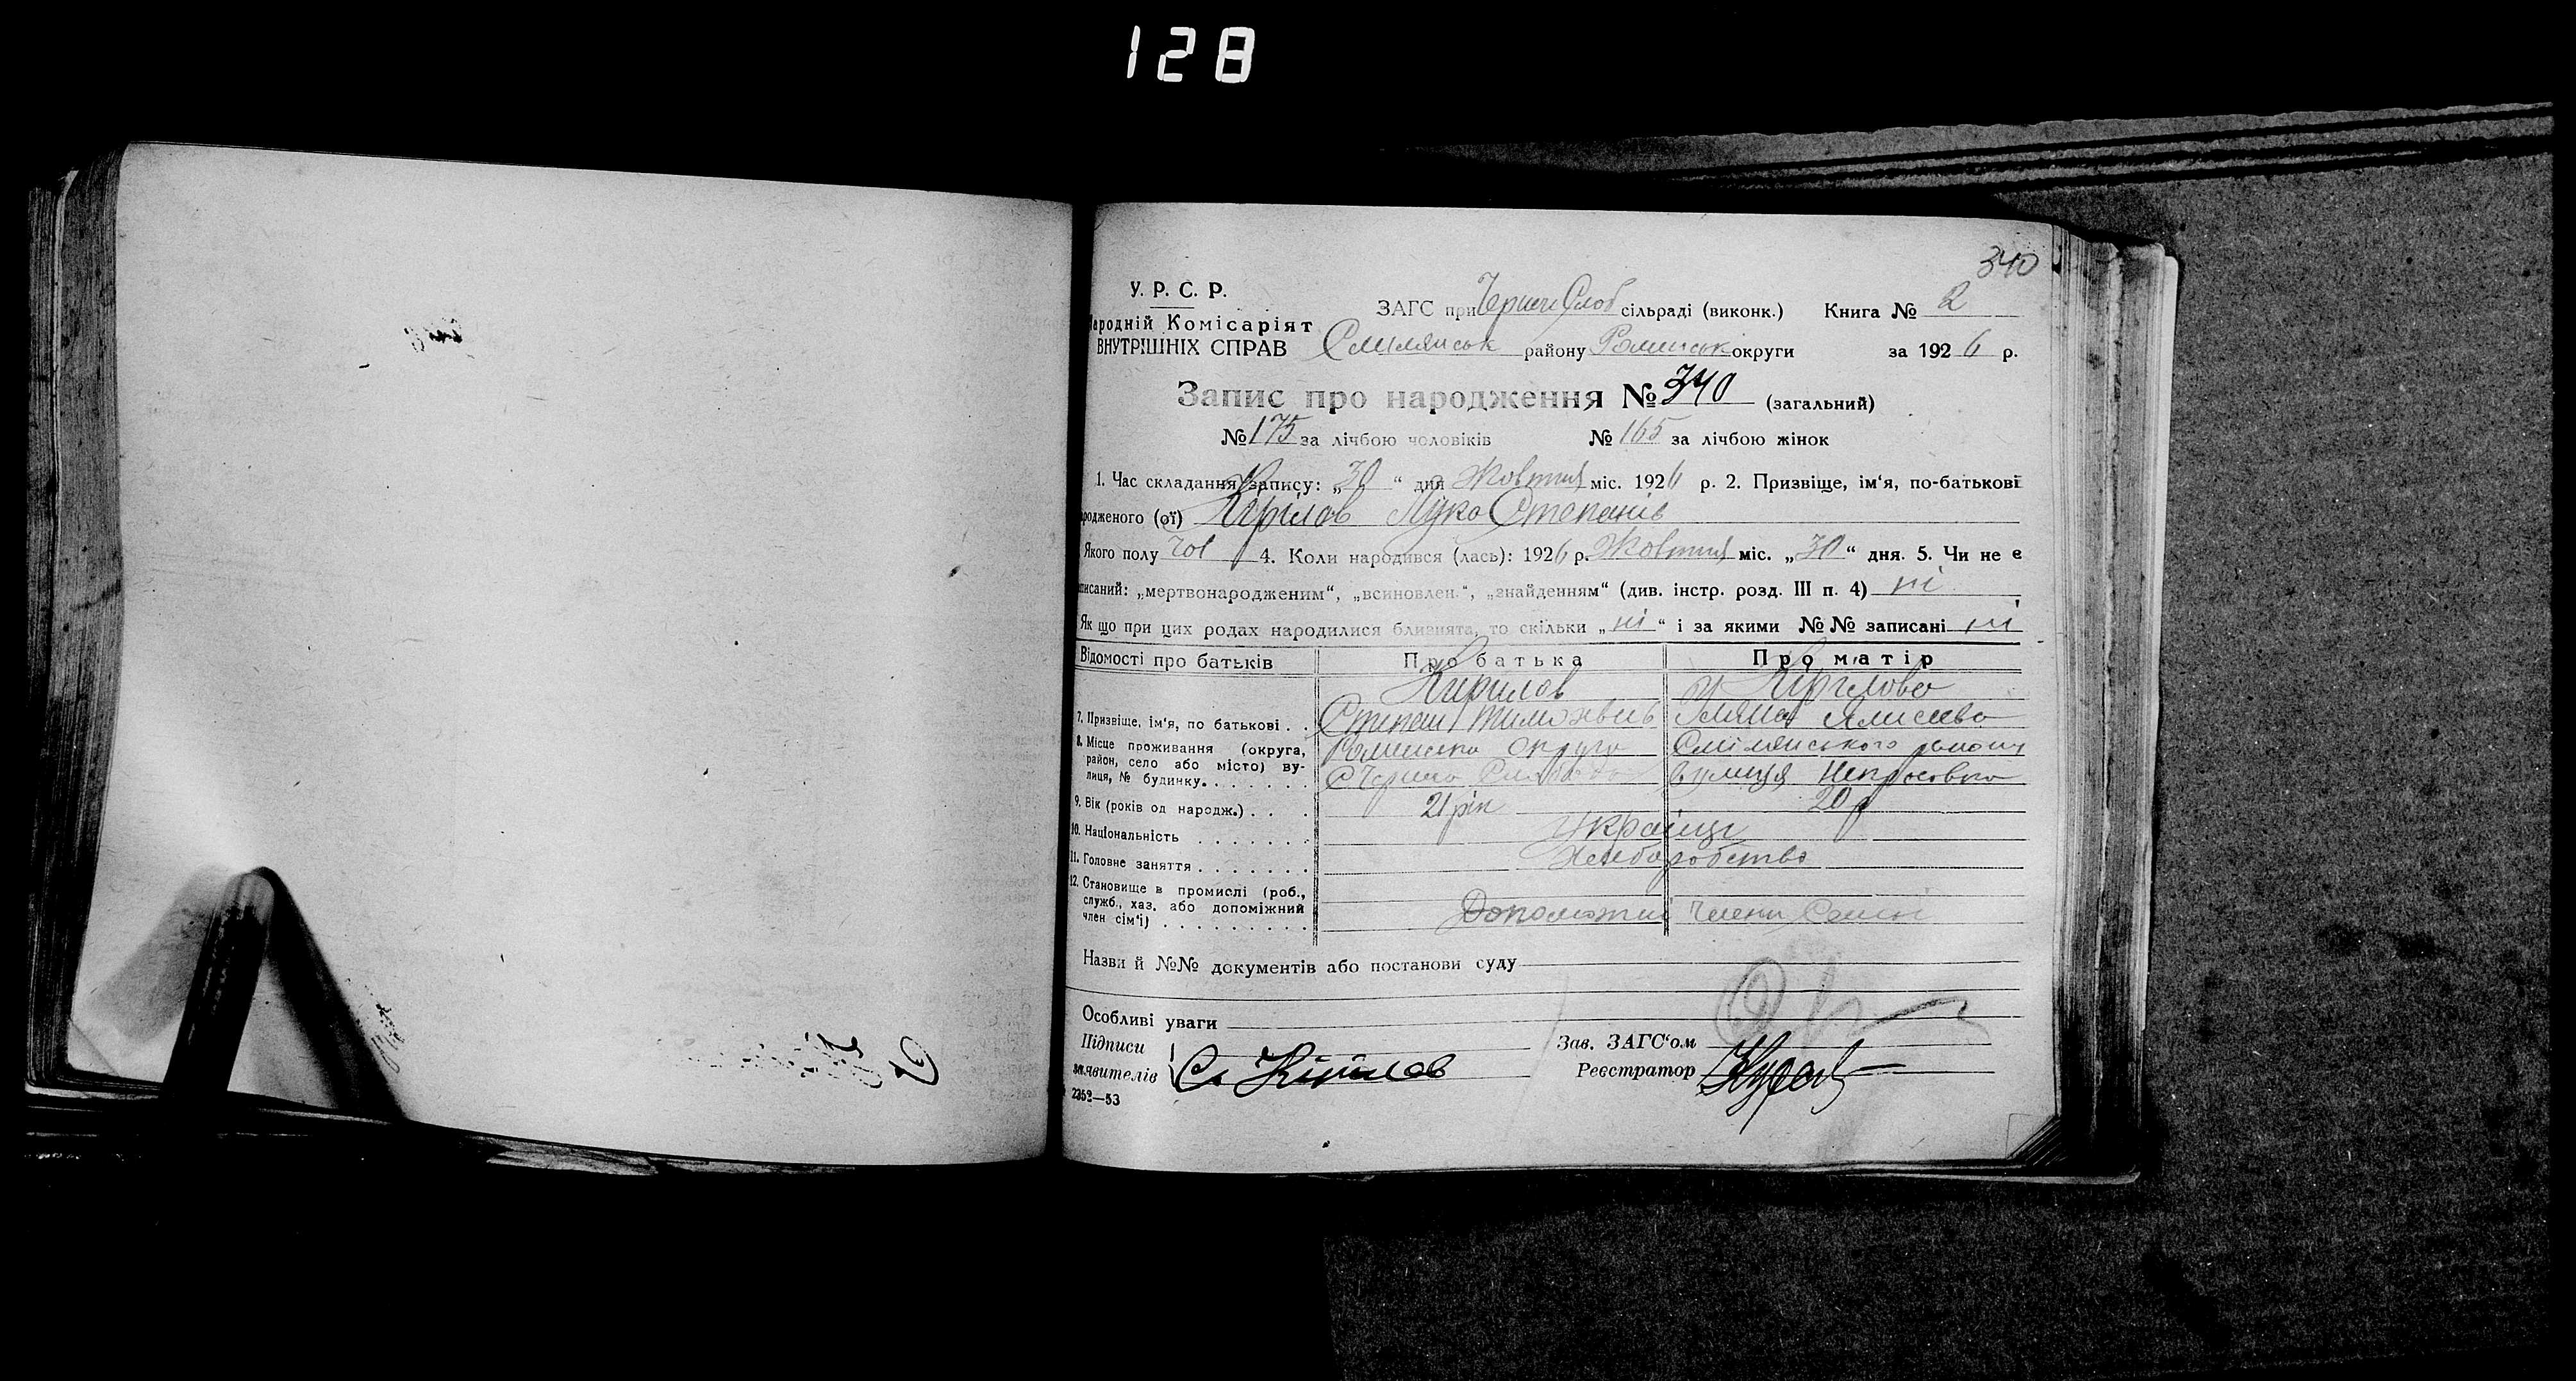 128
340
У. Р. С. Р.
Народній Комісаріят
ВНУТРІШНІХ СПРАВ
ЗАГС при Чернеч Слоб сільраді (виконк.) Книга № 2
Смілянськ району Роменськ округи за 1926 р.
Запис про народження № 340 (загальний)
№ 175 за лічбою чоловіків № 165 за лічбою жінок
1. Час складання запису: „30“ дня Жовтня міс. 1926 р. 2. Призвіще, ім‘я, по-батькові
родженого (ої) Кірілов Лука Степанів
Якого полу чол 4. Коли народився (лась): 1926 р. Жовтня міс. „30“ дня. 5. Чи не є
записаний: „мертвонародженим“, „всиновлен.“, „знайденням“ (див. інстр. розд. III п. 4) ні
Як що при цих родах народилися близнята, то скільки „ні“ і за якими №№ записані ні
Відомості про батьків Про батька Про матір
Кирилов Кірілова
7. Призвіще, ім‘я, по батькові . . Степан
8. Місце проживання (округа, район, село або місто) вулиця, № будинку. Роменска округа Смілянського району
с Чернеча Слобода вулиця
9. Вік (років од народж.) . . . 21 рік 20 р
10. Національність . . . . . . . Українці
11. Головне заняття . . . . . . . Хліборобство
12. Становище в промислі (роб., служб., хаз. або допоміжний член сім‘ї) . . . . . . . . . Допоможні члени Семьї
Назви й №№ документів або постанови суду
Особливі уваги
Підписи
заявителів С. Кірілов
Зав. ЗАГС‘ом
Реєстратор
2252—53